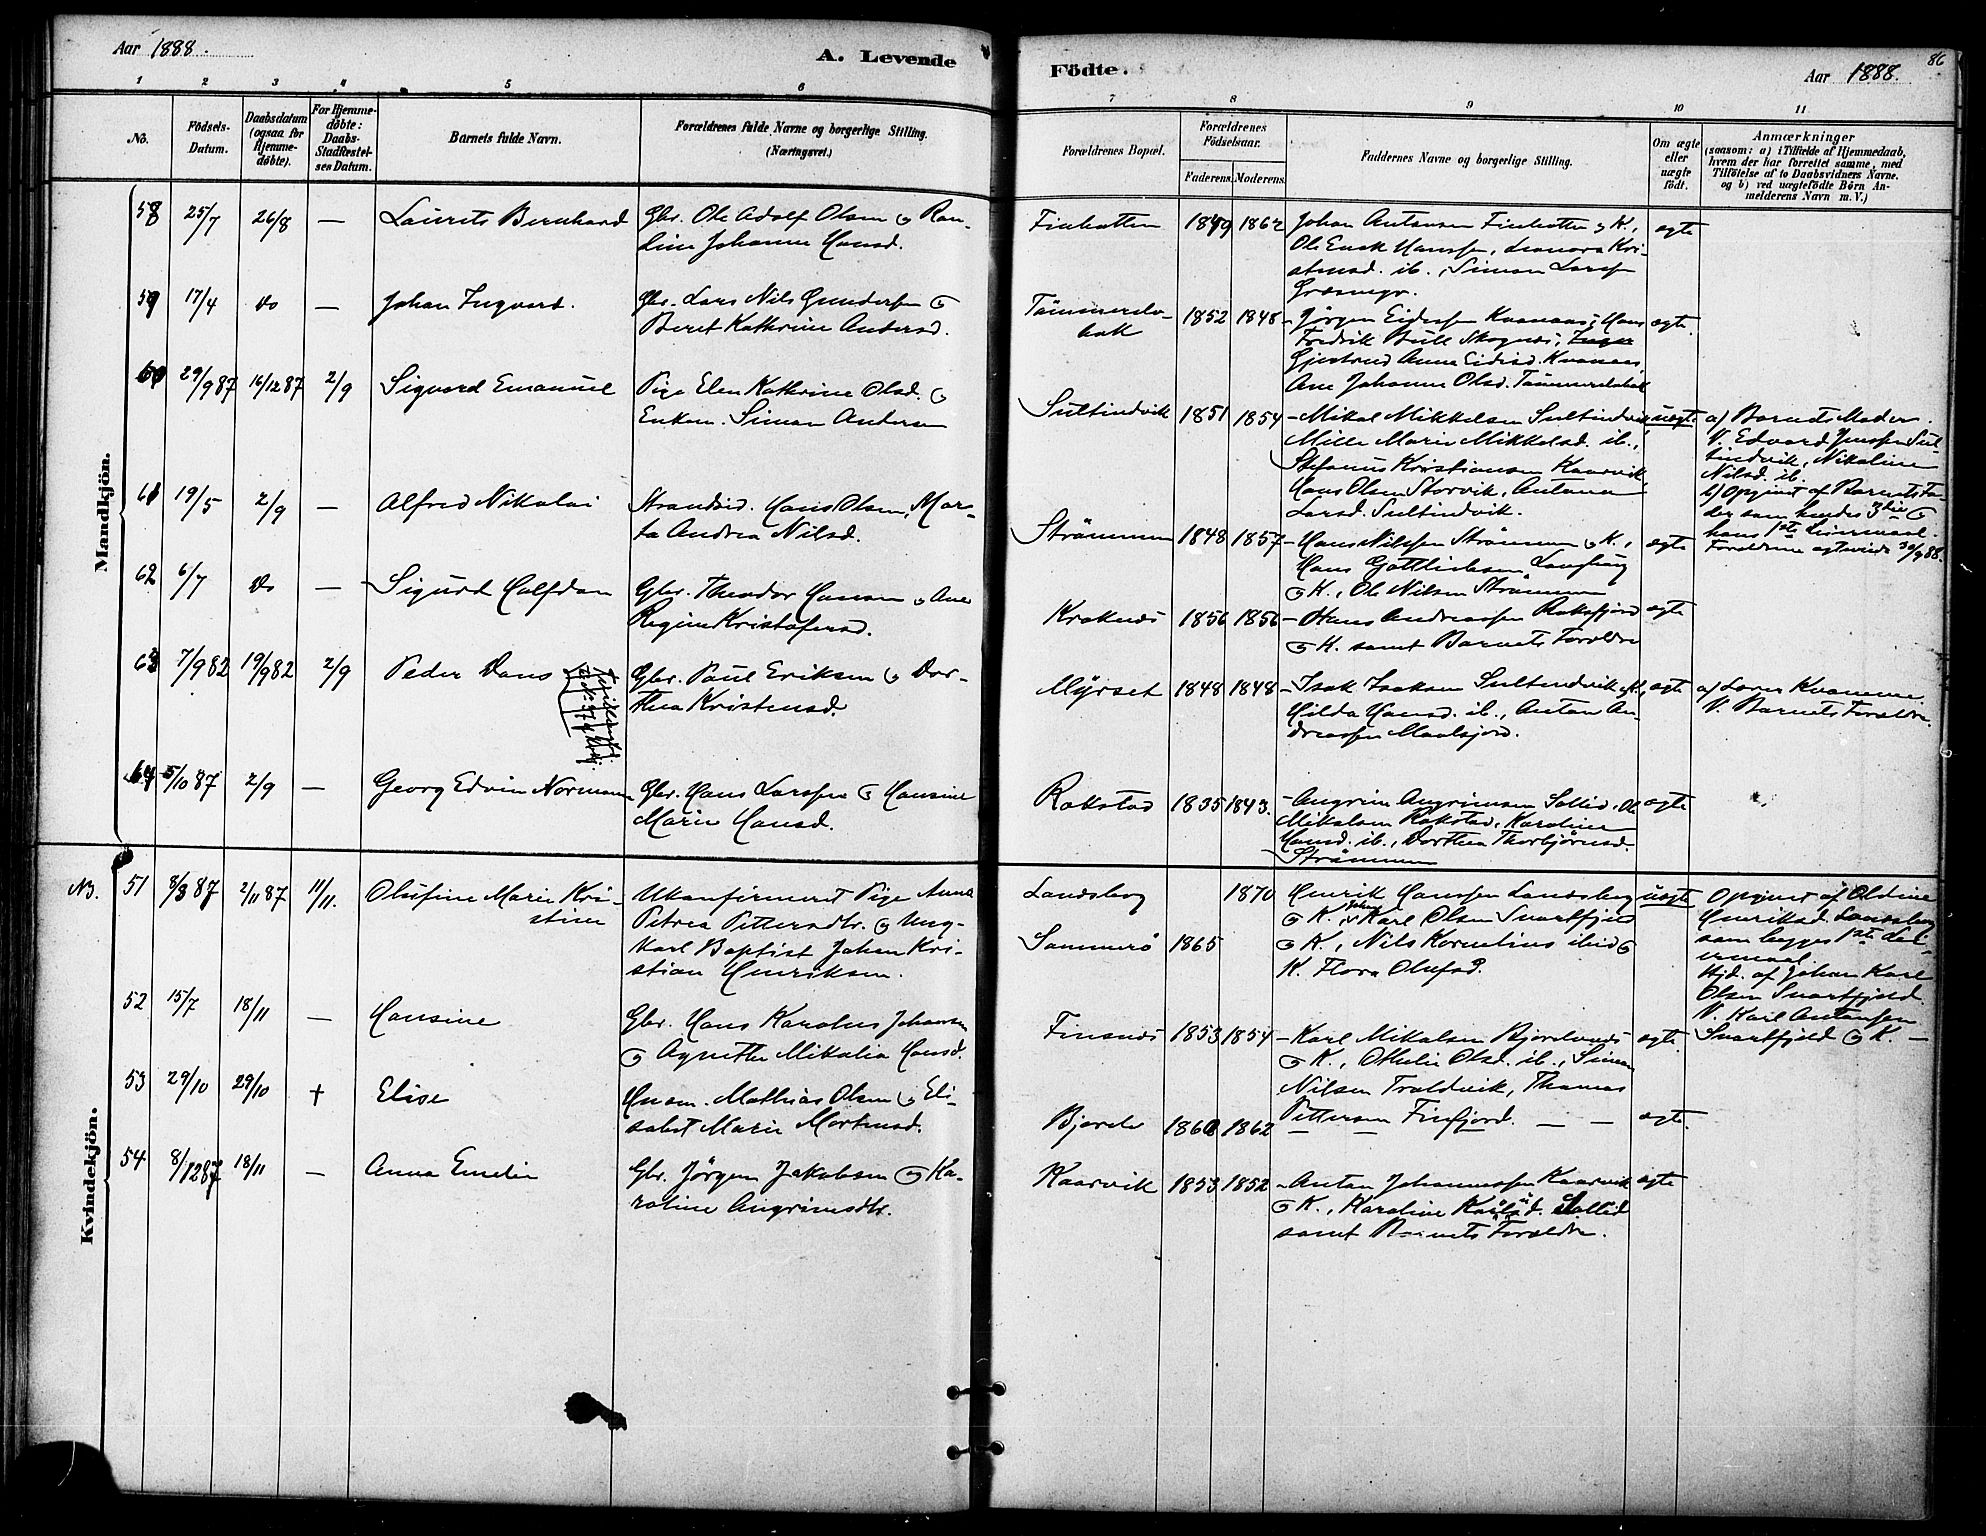 Aar 1888.
A. Levende Födte.
Aar 1888.
86
1 2 3 4 5 6 7 8 9 10 11
No.
Födsels-
Datum.
Daabsdatum
(ogsaa for
Hjemme-
döbte).
For Hjemme-
döbte:
Daabs-
Stadfæstel-
ses Datum.
Barnets fulde Navn.
Forældrenes fulde Navne og borgerlige Stilling.
(Næringsvei.)
Forældrenes Bopæl.
Forældrenes
Födselsaar.
Faderens. Moderens.
Faddernes Navne og borgerlige Stilling.
Om ægte
eller
uægte
födt.
Anmærkninger
(saasom: a) i Tilfælde af Hjemmedaab,
hvem der har forrettet samme, med
Tilföielse af to Daabsvidners Navne.
og b) ved uægtefödte Börn An-
melderens Navn m. V.)
Mandkjön.
58 25/7 26/8 — Laurits Bernhard
Gbr. Ole Adolf Olsen og Ran-
dine Johanna Hansd.
Finbatten 1849 1862
Johan Antonsen Finbatten og K.,
Ole Enok Hanssen, Leonora Kri-
stensd. ib., Simon Larssen
ægte
59 17/4 do — Johan Ingvard.
Gbr. Lars Nils Gundersen og
Beret Kathrine Andersd.
Tömmerelv-
bak
1852 1848
Jörgen Eidessen Kvanaas, Hans
Fredrik Bull Skognes, Inger
Gjertrud Anna Eidisd. Kvanaas,
Ane Johanna Olsd. Tömmerelvbak
ægte.
60 29/9 87 16/12 87 2/9 Sigvard Emanuel
Pige Elen Kathrine Olsd. og
Enkem. Simon Andersen
Sultindvik 1851 1854
Mikal Mikkelsen Sultindvik,
Mille Marie Mikkelsd. ib.,
Stefanus Kristiansen Kaarvik,
Hans Olsen Storvik, Antona
Larsd. Sultindvik.
uægte
a) Barnets Moder.
V. Edvard Jenssen Sul-
tindvik, Nikoline
Nilsd. ib.
b) Opgivet af Barnets Fa-
der som hendes 3die og
hans 1ste Leiermaal.
Forældrene ægteviede 30/9 88.
61 19/5 2/9 — Alfred Nikolai
Strandsid. Hans Olsen, Mar-
ta Andrea Nilsd.
Strömmen 1848 1857
Hans Nilssen Strömmen og K.,
Hans Gottliebsen
og K., Ole Nilsen Strömmen
ægte
62 6/7 do — Sigurd Halfdan
Gbr. Theodor Hansen og Ane
Regine Kristofersd.
Kraknes 1856 1856
Hans Andreassen Roksfjord
og K. samt Barnets Forældre
ægte
63 7/9 82 19/9 82 2/9 Peder Dans
Gbr. Paul Eriksen og Dor-
thea Kristensd.
Myrset 1848 1848
Isak Isaksen Sultindvik og K.,
Hilda Hansd. ib., Anton An-
dreassen Maalsjord.
ægte
a) Lærer Kvamme
V. Barnets Forældre.
64 5/10 87 2/9 — Georg Edvin Normann
Gbr. Hans Larssen og Hansine
Marie Hansd.
Rakstad 1835 1843.
Angrim Angrimsen Sollid, Ole
Mikalsen Rakstad, Karoline
Hansd. ib., Dorthea Thorbjörnsd.
Strömmen
ægte
Kvindekjön.
NB. 51 8/3 87 2/11 87 11/11. Olufine Marie Kri-
stine
Ukonfirmeret Pige Anna
Petrea Pettersdtr. og Ung-
karl Baptist Johan Kri-
stian Henriksen.
Landsbog 1870
Sommerö 1865
Henrik Hanssen Landsbog
og K. Johan Karl Olsen Svartfjeld
og K., Nils Kornelius ibid og
K. Flora Olufsd.
uægte
Opgivet af Oldine
Henriksd. Landsbog
som begges 1ste Lei-
ermaal.
Hjd. af Johan Karl
Olsen Svartfjeld.
V. Karl Antonsen
Svartfjeld og K. —
52 15/7 18/11 — Hansine
Gbr. Hans Karolus Johansen
og Agnethe Mikalia Hansd.
Finsnes 1853 1854
Karl Mikalsen Bjorelvnes
og K., Othelie Olsd. ib., Simon
Nilsen Troldvik, Thomas
Pettersen Finfjord.
ægte.
53 29/10 29/10 + Elise
Husm. Mathias Olsen og Eli-
sabet Marie Mortensd.
Bjorelv 1860 1862
— — — —
ægte.
54 8/12 87 18/11 — Anna Emelie
Gbr. Jörgen Jakobsen og Ka-
roline Angrimsdtr.
Kaarvik 1853 1852
Anton Johannessen Kaarvik
og K., Karoline Karlsd. Sollid
samt Barnets Forældre.
ægte